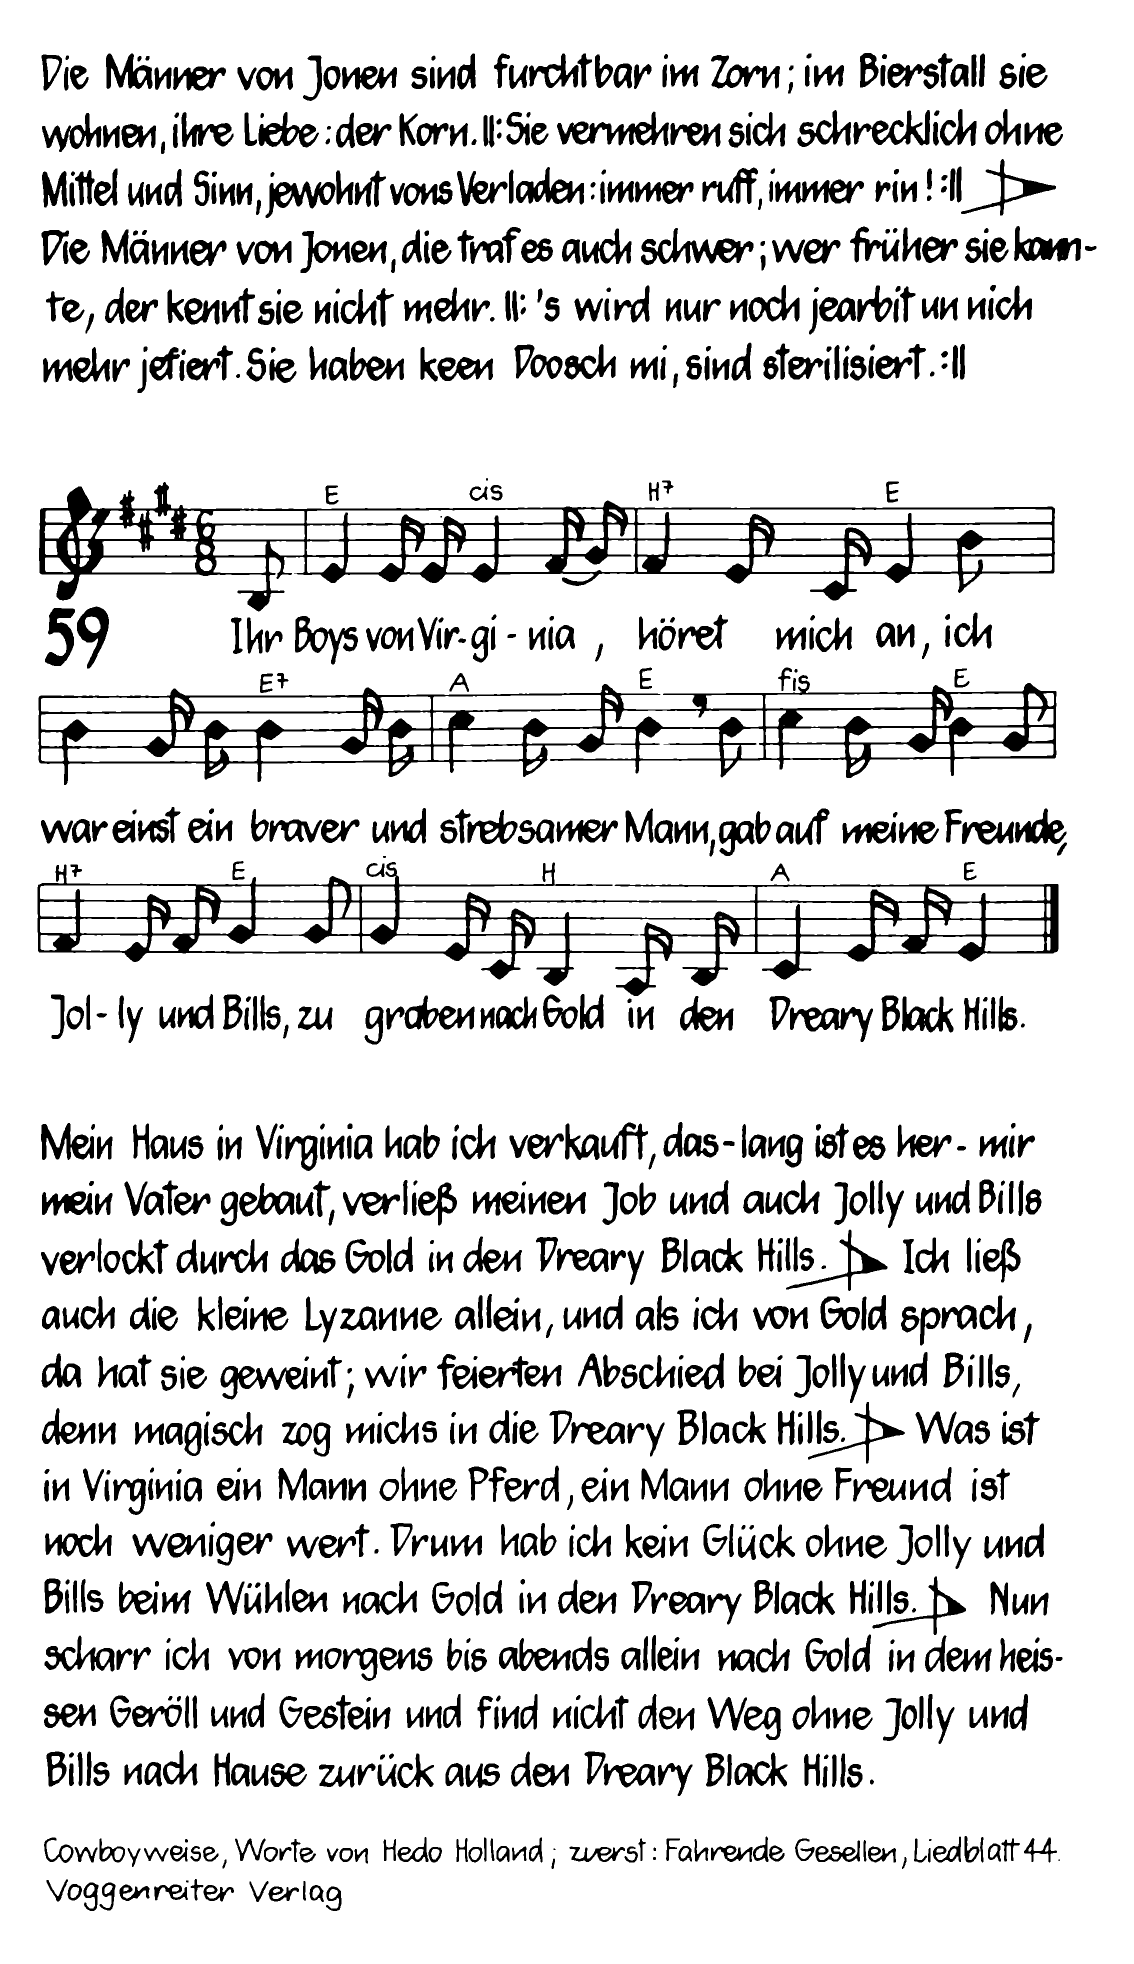 Die Männer von Jonen sind furchtbar im Zorn; im Bierstall sie
wohnen, ihre Liebe: der Korn. ||: Sie vermehren sich schrecklich ohne
Mittel und Sinn, jewohnt vons Verladen: immer ruff, immer rin! :||
Die Männer von Jonen, die traf es auch schwer; wer früher sie kann-
te, der kennt sie nicht mehr. ||: 's wird nur noch jearbit un nich
mehr jefiert. Sie haben keen Doosch mi, sind sterilisiert. :||
E cis H7 E
6
8
59
Ihr Boys von Vir-gi-nia, höret mich an, ich
E7 A E fis E
war einst ein braver und strebsamer Mann, gab auf meine Freunde,
H7 E cis H A E
Jol-ly und Bills, zu graben nach Gold in den Dreary Black Hills.
Mein Haus in Virginia hab ich verkauft, das - lang ist es her - mir
mein Vater gebaut, verließ meinen Job und auch Jolly und Bills
verlockt durch das Gold in den Dreary Black Hills. Ich ließ
auch die kleine Lyzanne allein, und als ich von Gold sprach,
da hat sie geweint; wir feierten Abschied bei Jolly und Bills,
denn magisch zog michs in die Dreary Black Hills. Was ist
in Virginia ein Mann ohne Pferd, ein Mann ohne Freund ist
noch weniger wert. Drum hab ich kein Glück ohne Jolly und
Bills beim Wühlen nach Gold in den Dreary Black Hills. Nun
scharr ich von morgens bis abends allein nach Gold in dem heis-
sen Geröll und Gestein und find nicht den Weg ohne Jolly und
Bills nach Hause zurück aus den Dreary Black Hills.
Cowboyweise, Worte von Hedo Holland; zuerst: Fahrende Gesellen, Liedblatt 44.
Voggenreiter Verlag